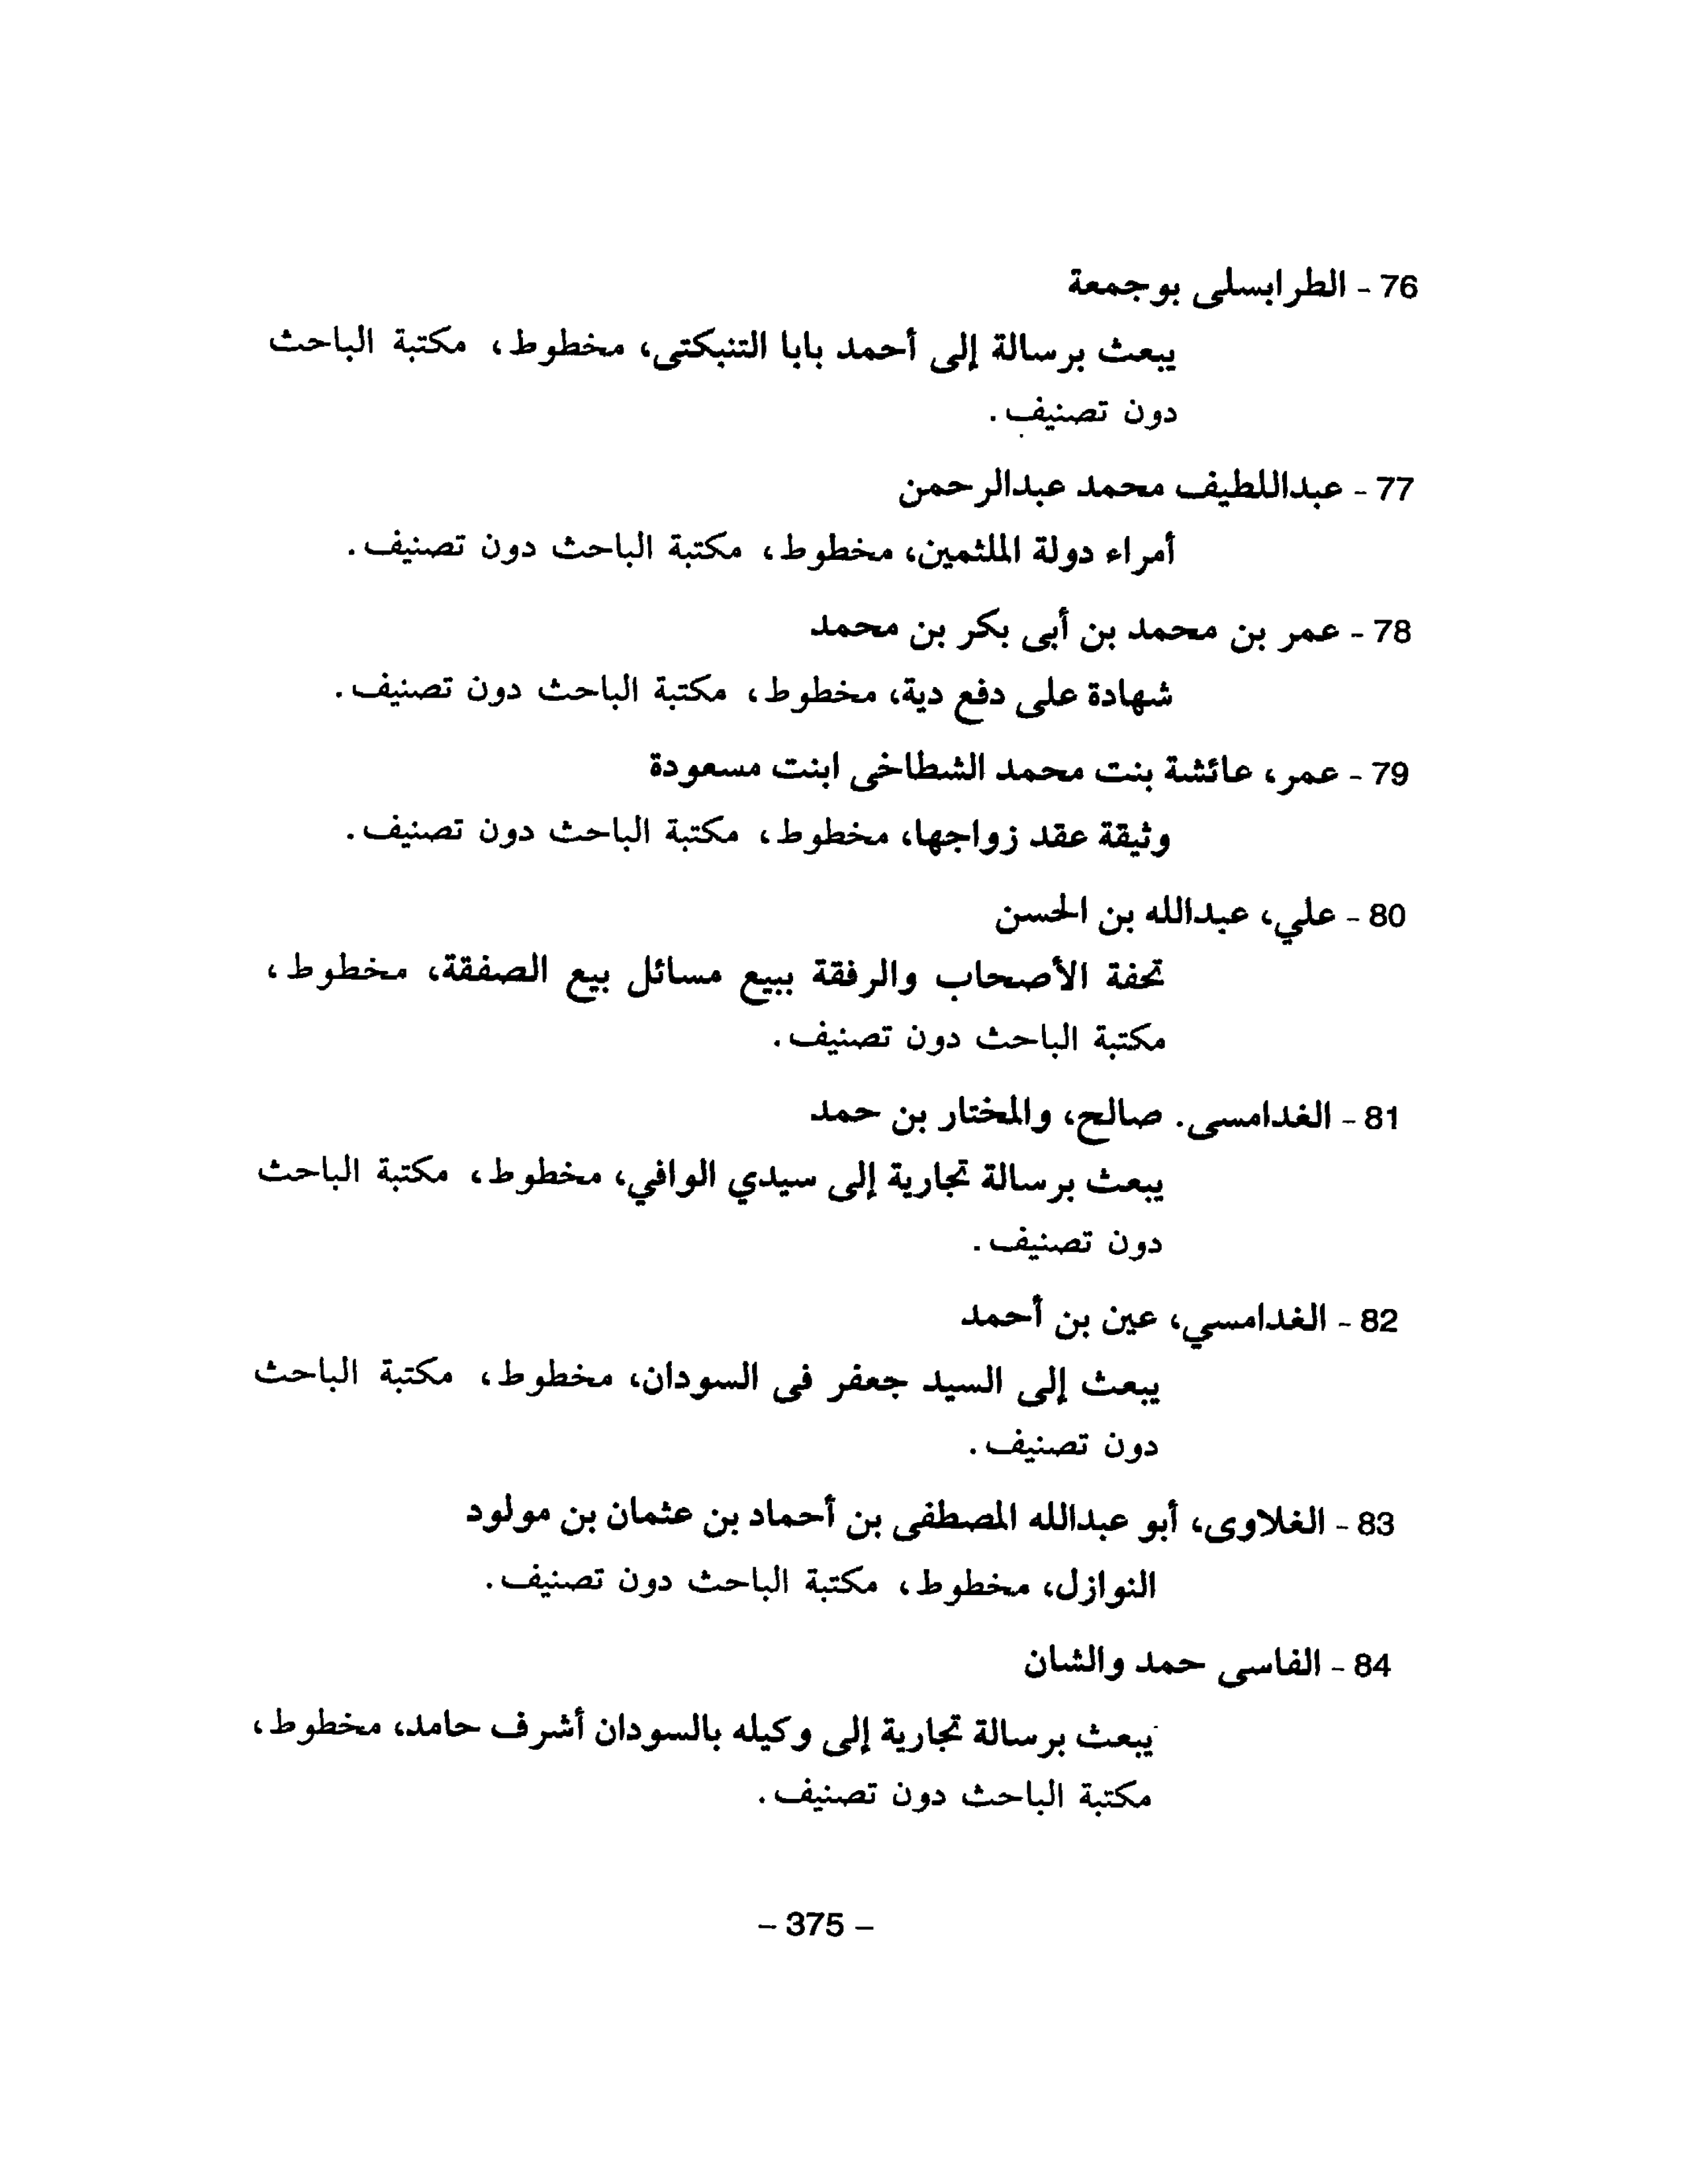 76 - الطرابسلى بوجمعة
يبعث برسالة إلى أحمد بابا التنبكتى، مخطوط، مكتبة الباحث
دون تصنيف.
77 - عبداللطيف محمد عبدالرحمن
أمراء دولة الملثمين، مخطوط، مكتبة الباحث دون تصنيف.
78 - عمر بن محمد بن أبى بكر بن محمد
شهادة على دفع دية، مخطوط، مكتبة الباحث دون تصنيف.
79 - عمر، عائشة بنت محمد الشطاخى ابنت مسعودة
وثيقة عقد زواجها، مخطوط، مكتبة الباحث دون تصنيف.
80 - علي، عبدالله بن الحسن
تحفة الأصحاب والرفقة ببيع مسائل بيع الصفقة، مخطوط،
مكتبة الباحث دون تصنيف.
81 - الغدامسى. صالح، والمختار بن حمد
يبعث برسالة تجارية إلى سيدي الوافي، مخطوط، مكتبة الباحث
دون تصنيف.
82 - الغدامسي، عين بن أحمد
يبعث إلى السيد جعفر فى السودان، مخطوط، مكتبة الباحث
دون تصنيف.
83 - الغلاوى، أبو عبدالله المصطفى بن أحماد بن عثمان بن مولود
النوازل، مخطوط، مكتبة الباحث دون تصنيف.
84 - الفاسى حمد والشان
يبعث برسالة تجارية إلى وكيله بالسودان أشرف حامد، مخطوط،
مكتبة الباحث دون تصنيف.
- 375 -